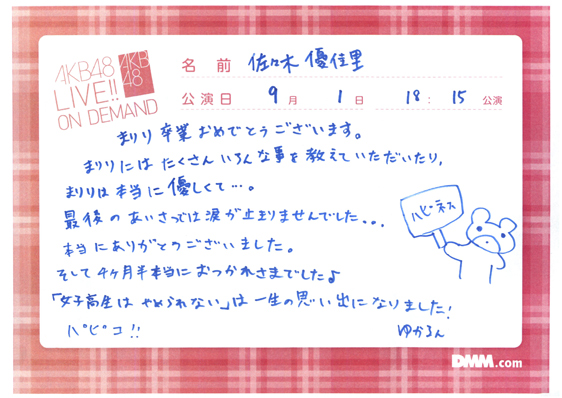 AKB48
LIVE!!
ON DEMAND
AKB
48
名 前 佐々木 優佳里
公演日 9月 1日 18:15 公演
まりり卒業おめでとうございます。
まりりにはたくさんいろんな事を教えていただいたり,
まりりは本当に優しくて…。
最後のあいさつでは涙が止まりませんでした...
本当にありがとのございました。
そして4ヶ月半本当におつかれさまでした♪
「女子高生はやめられない」は一生の思い出になりました!
ハピコ!!
ゆかるん
ハピネス
DMM.com